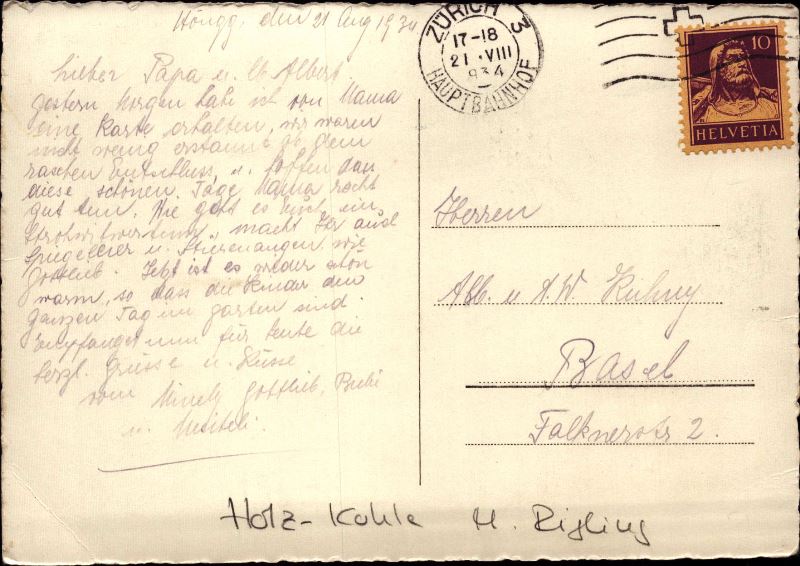 Höngg, den 21 Aug 1934
Lieber Papa u. lb Albert
gestern Morgen habe ich von Mama
eine Karte erhalten, wir waren
nicht wenig erstaunt ob dem
raschen Entschluss, u. hoffen dass
diese schönen Tage Mama recht
gut tun. Wie geht es Euch im
macht Ihr auch
Spiegeleier u. Stierenaugen wie
Gottlieb. Jetzt ist es wieder schön
warm, so dass die Kinder den
ganzen Tag im garten sind.
Empfanget nun für heute die
herzl. Grüsse u. Küsse
vom Gottlieb, Bubi
u. Meiteli.
ZÜRICH 3
17-18
21.VIII
934
HAUPTBAHNHOF
10
HELVETIA
Herren
Alb. u. A.W
Basel
Falknerstr 2.
Holz-Kohle M. Rigling